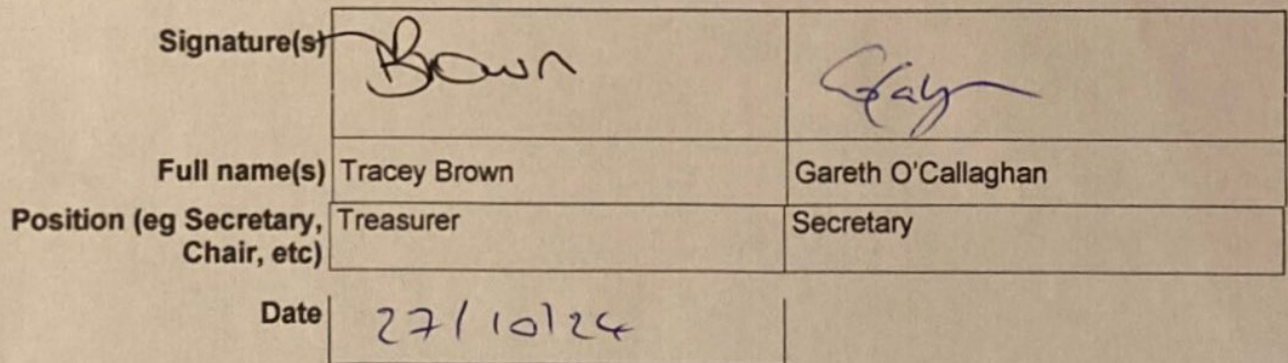 Signature(s) Brown
Full name(s) Tracey Brown Gareth O'Callaghan
Position (eg Secretary, Treasurer Secretary
Chair, etc)
Date 27/10/24